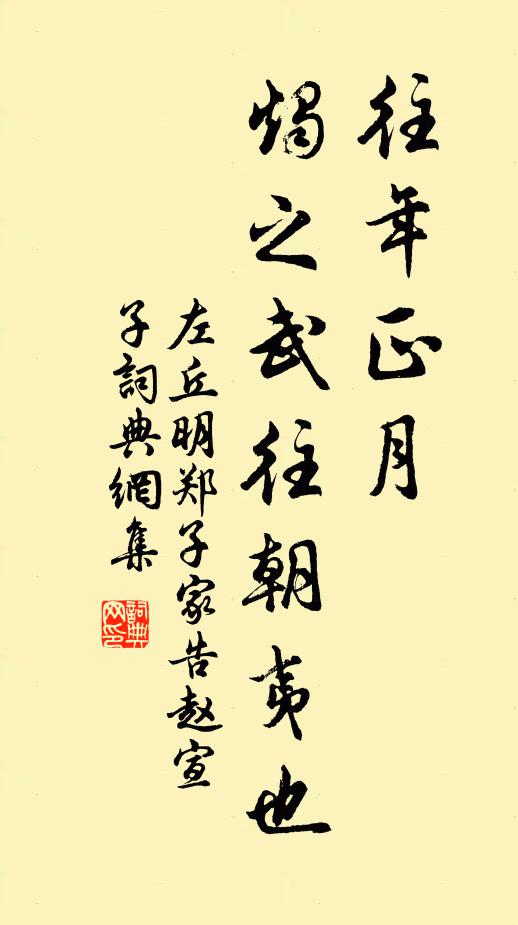 往年正月
燭之武往朝夷也
左丘明郑子家告赵宣
子詞典網集
詞典
网印